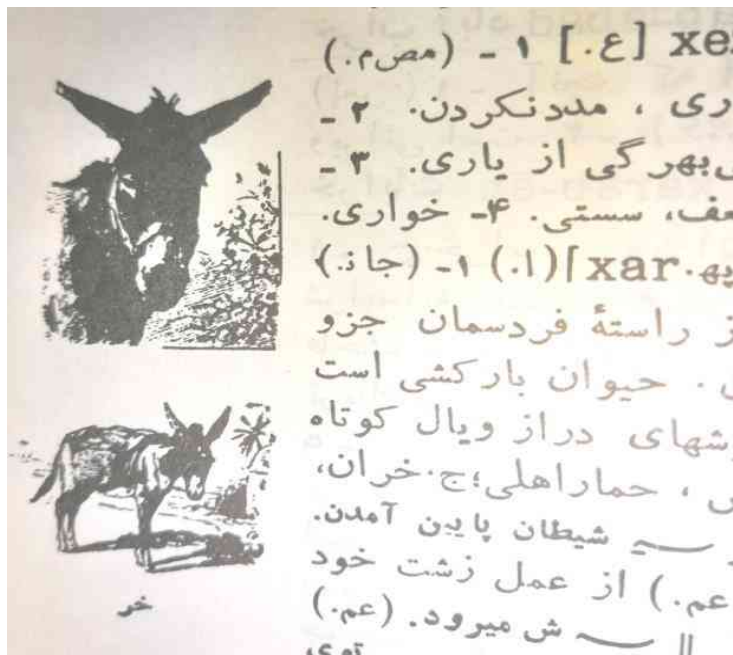 [ع.] ۱ - (مص‌م.)
مددنکردن. ۲ -
از یاری. ۳ -
سستی. ۴- خواری.
xar] (ا.) ۱- (جاذ.)
راستهٔ فردسمان جزو
. حیوان بارکشی است
دراز ویال کوتاه
، حماراهلی؛ج.خران،
شیطان پایین آمدن.
عم.) از عمل زشت خود
|| ـــ ش میرود. (عم.)
توی
خر